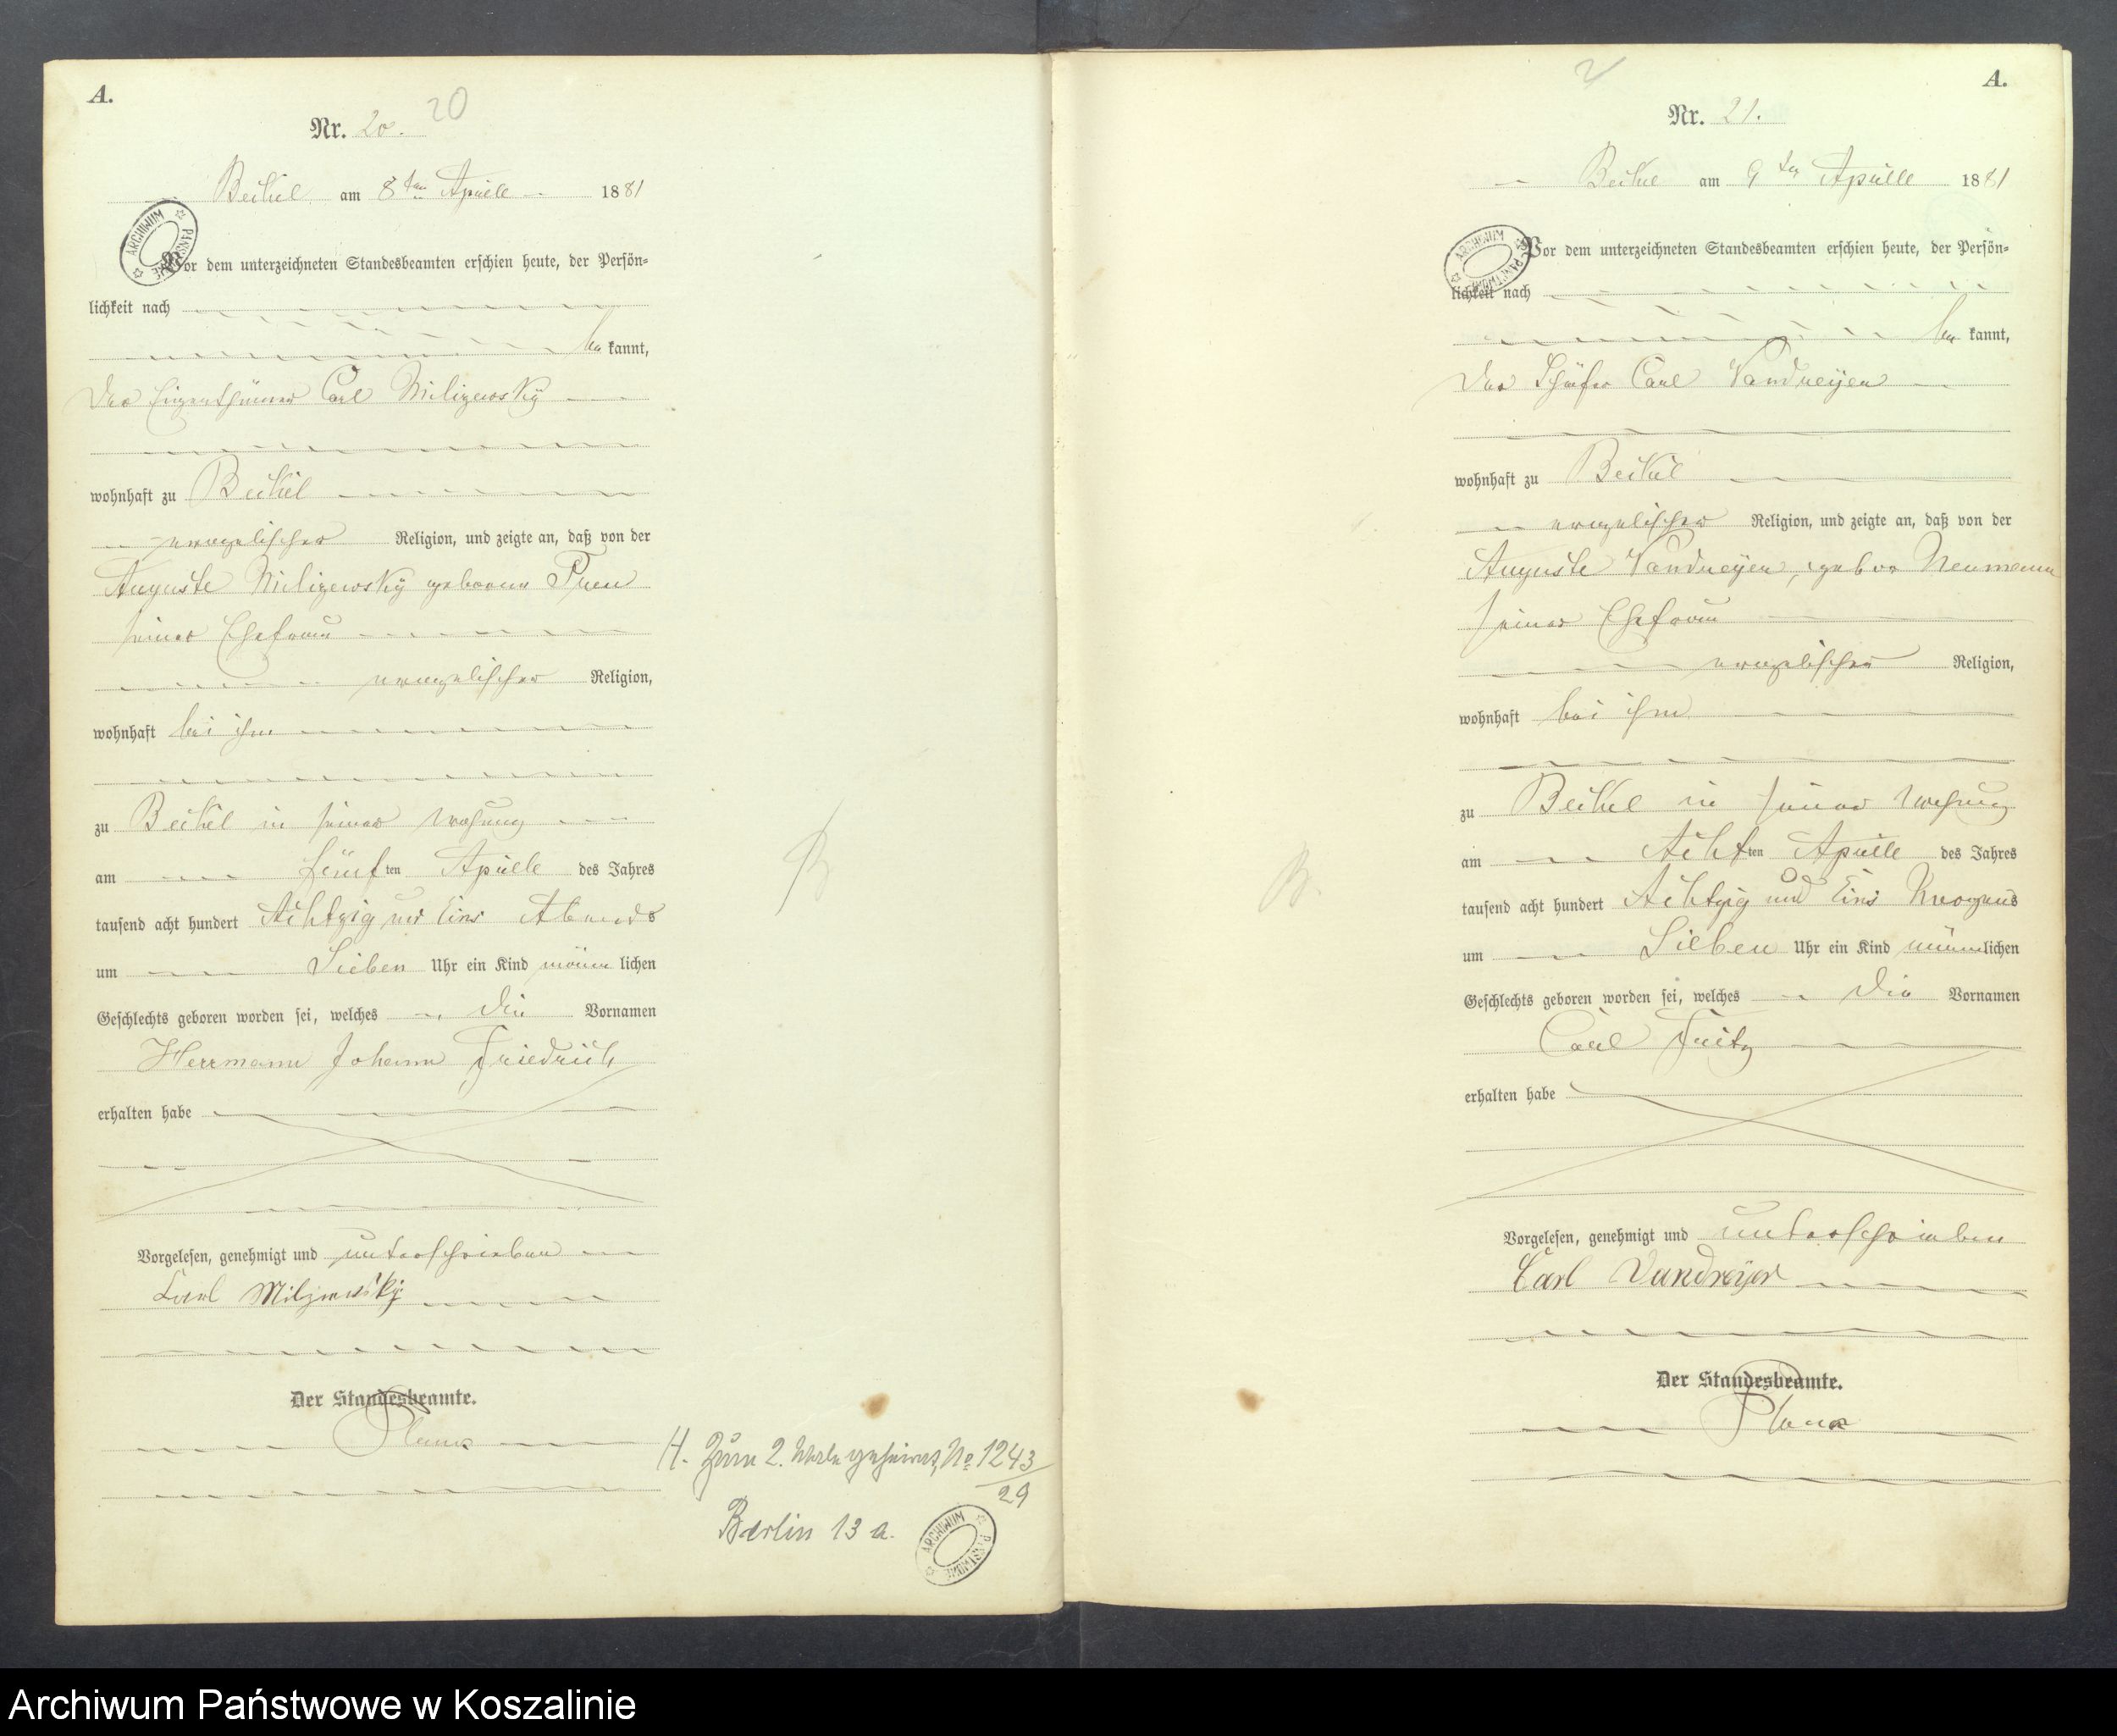 A.
Nr. 20. 20
Beikel am 8ten Aprill 1881
Vor dem unterzeichneten Standesbeamten erschien heute, der Persön-
lichkeit nach
be kannt,
der Eigenthümer Carl Milizewsky
wohnhaft zu Beikel
evangelischer Religion, und zeigte an, daß von der
Auguste Milizewsky geborene
seiner Ehefrau
evangelischer Religion,
wohnhaft bei ihm
zu Beikel in seiner Wohung
am fünf ten Aprill des Jahres
tausend acht hundert Achtzig und Eins Abends
um Sieben Uhr ein Kind männ lichen
Geschlechts geboren worden sei, welches die Vornamen
Herrmann Johann Friedrich
erhalten habe
Vorgelesen, genehmigt und unterschrieben
Carl Milzewsky
Der Standesbeamte.
H. Zum 2. Male geheirat, No 1243/29
Berlin 13 a.
ARCHIWUM PAŃSTWOWE
A.
Nr. 21.
Beikel am 9ten Aprill 1881
Vor dem unterzeichneten Standesbeamten erschien heute, der Persön-
lichkeit nach
be kannt,
der Schäfer Carl Vandreyer
wohnhaft zu Beikel
evangelischer Religion, und zeigte an, daß von der
Auguste Vandreyer, gebor Neumann
seiner Ehefrau
evangelischer Religion,
wohnhaft bei ihm
zu Beikel in seiner Wohung
am Acht ten Aprill des Jahres
tausend acht hundert Achtzig und Eins Morgens
um Sieben Uhr ein Kind männlichen
Geschlechts geboren worden sei, welches die Vornamen
Carl Fritz
erhalten habe
Vorgelesen, genehmigt und unterschrieben
Carl Vandreyer
Der Standesbeamte.
Archiwum Państwowe w Koszalinie